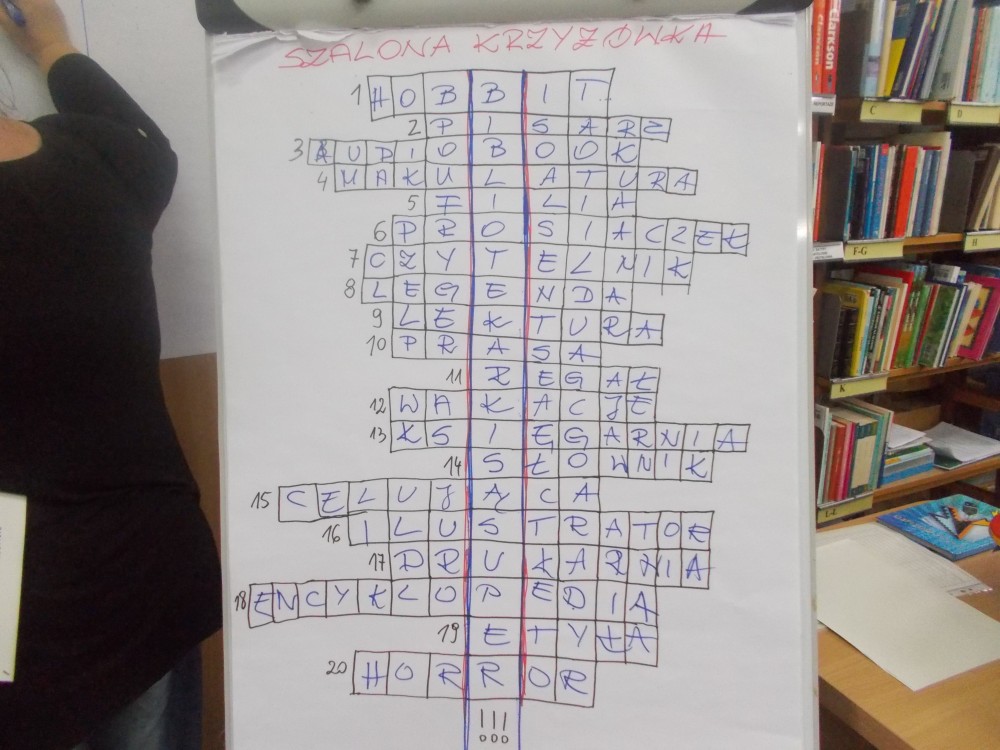 SZALONA KRZYŻÓWKA
1 HOBBIT
2 PISARZ
3 AUDIOBOOK
4 MAKULATURA
5 FILIA
6 PROSIACZEK
7 CZYTELNIK
8 LEGENDA
9 LEKTURA
10 PRASA
11 REGAŁ
12 WAKACJE
13 KSIĘGARNIA
14 SŁOWNIK
15 CELUJĄCA
16 ILUSTRATOR
17 DRUKARNIA
18 ENCYKLOPEDIA
19 ETYKA
20 HORROR
!!!
clarkson
C
D
F-G
H
K